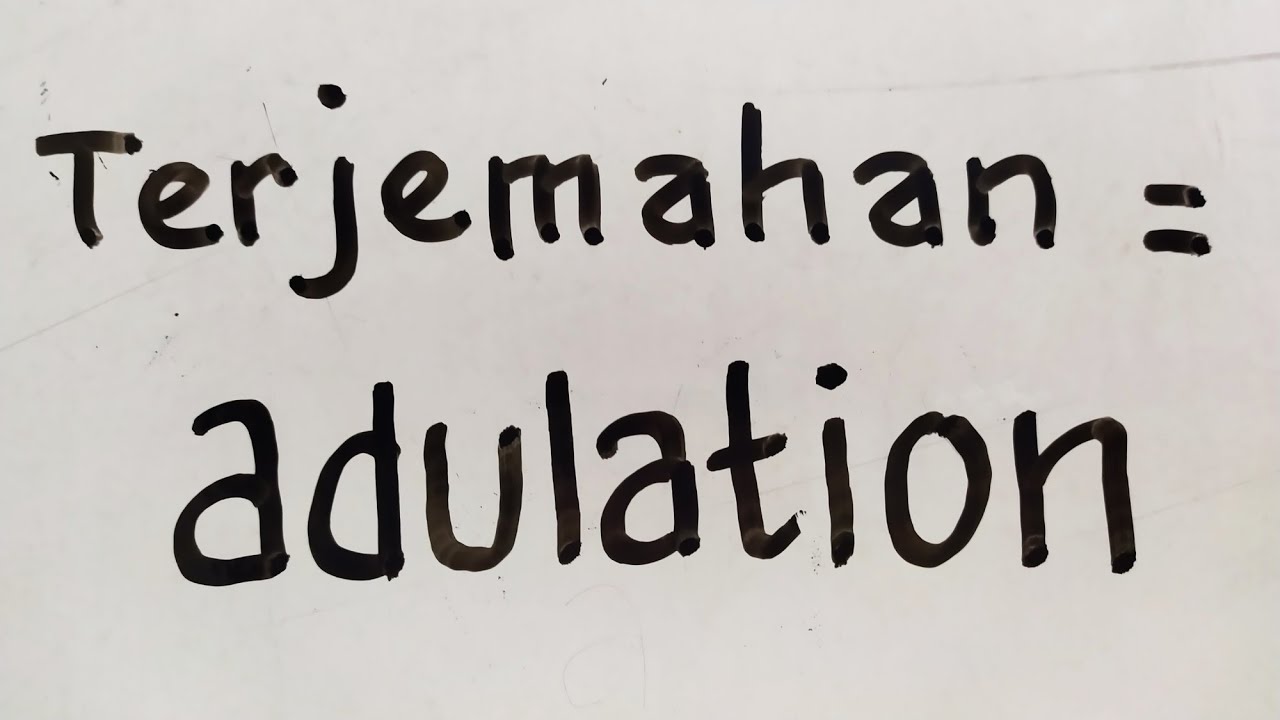 Terjemahan =
adulation